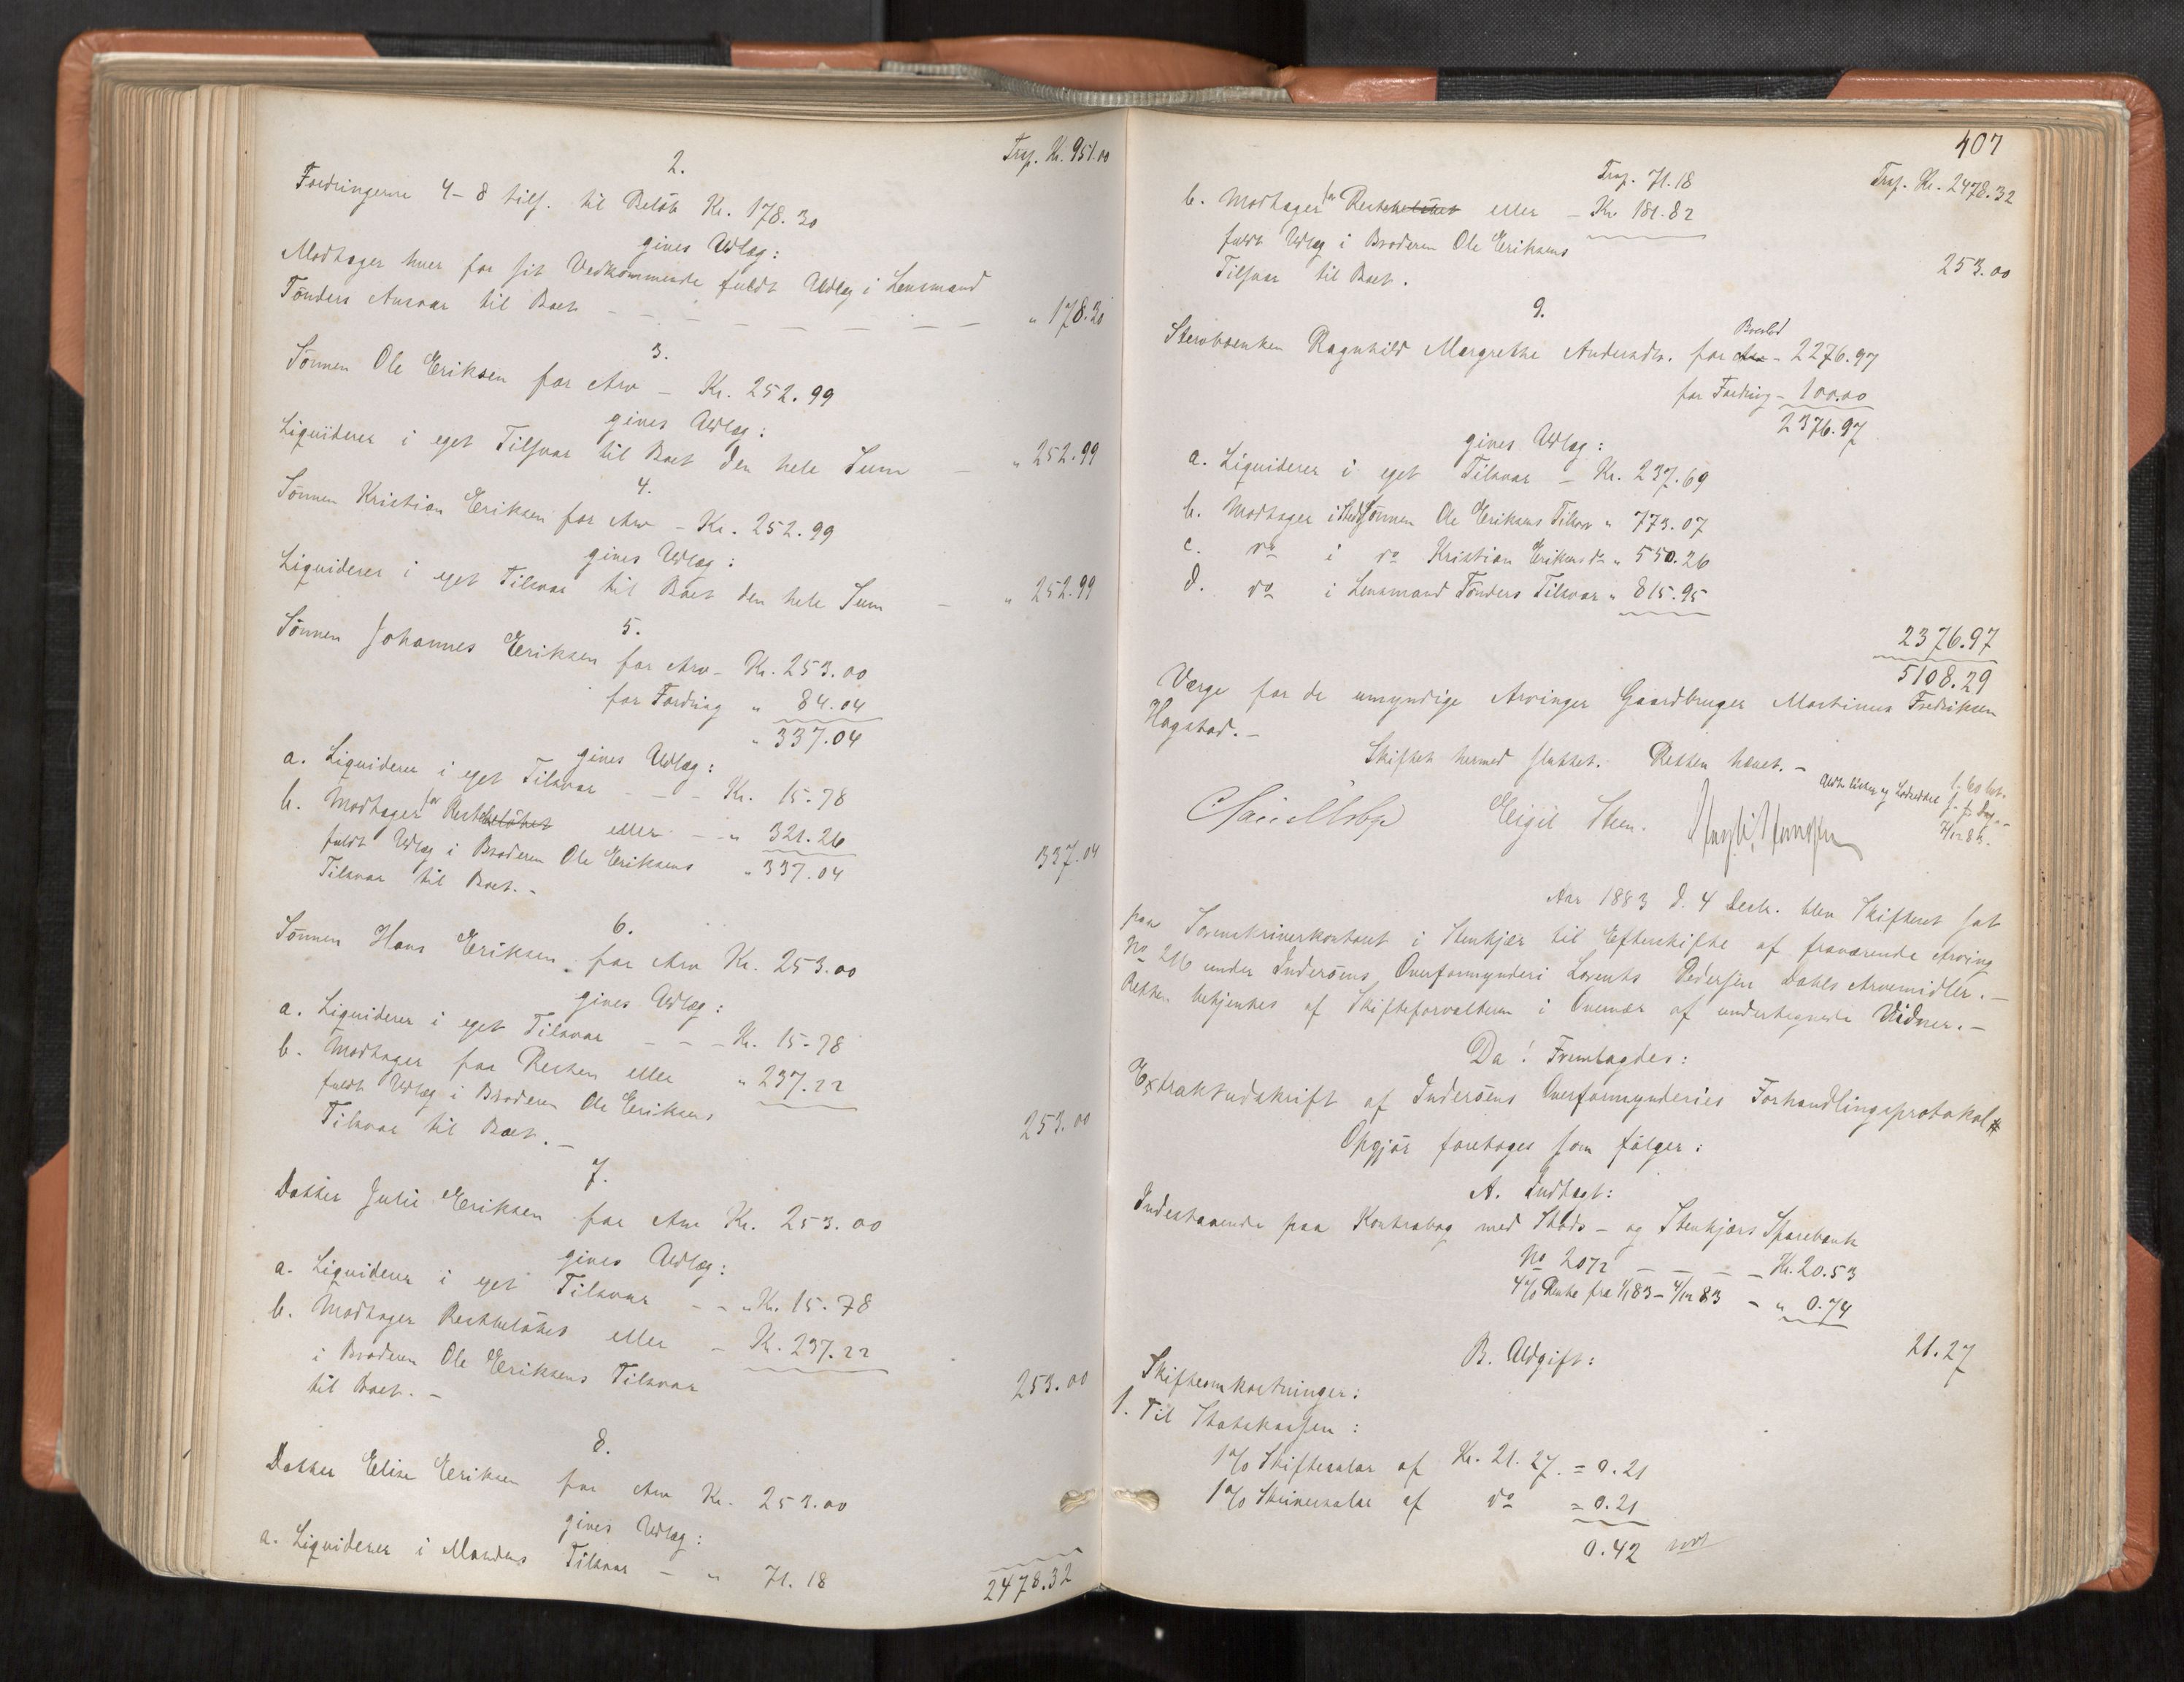 Trsp. Kr. 951.00
2.
Fordringerne 4-8 tils. til Beløb Kr. 178.30
gives Udlæg:
Modtager hver for sit Vedkommende fuldt Udlæg i Lensmand
Tønders Ansvar til Boet - - - - - - - " 178.30
3.
Sønnen Ole Eriksen for Arv - Kr. 252.99
gives Udlæg:
Liquiderer i eget Tilsvar til Boet den hele Sum - " 252.99
4.
Sønnen Kristian Eriksen for Arv - Kr. 252.99
gives Udlæg:
Liquiderer i eget Tilsvar til Boet den hele Sum - " 252.99
5.
Sønnen Johannes Eriksen for Arv - Kr. 253.00
for Fordring " 84.04
" 337.04
gives Udlæg:
a. Liquiderer i eget Tilsvar - - - Kr. 15.78
b. Modtager for Restbeløbet eller - - " 321.26
fuldt Udlæg i Broderen Ole Eriksens " 337.04
Tilsvar til Boet. - 337.04
6.
Sønnen Hans Eriksen for Arv Kr. 253.00
gives Udlæg:
a. Liquiderer i eget Tilsvar - - - Kr. 15.78
b. Modtager for Resten eller " 237.22
fuldt Udlæg i Broderen Ole Eriksens
Tilsvar til Boet. - 253.00
7.
Datter Julie Eriksen for Arv Kr. 253.00
gives Udlæg:
a. Liquiderer i eget Tilsvar - - " Kr. 15.78
b. Modtager Restbeløbet eller - Kr. 237.22
i Broderen Ole Eriksens Tilsvar
til Boet. - 253.00
8.
Datter Elise Eriksen for Arv Kr. 253.00
gives Udlæg:
a. Liquiderer i Mandens Tilsvar - " 71.18
2478.32
407
Trsp. 71.18 Trsp. Kr. 2478.32
b. Modtager for Restbeløbet eller - Kr 181.82
fuldt Udlæg i Broderen Ole Eriksens
Tilsvar til Boet. 253.00
9.
Sterboenken Ragnhild Margrethe Andersdtr. for Arv Boeslod - 2276.97
for Fordring - 100.00
2376.97
gives Udlæg:
a. Liquiderer i eget Tilsvar - Kr. 237.69
b. Modtager i Stedsønnen Ole Eriksens Tilsvar " 773.07
c. do i do Kristian Eriksens do " 550.26
d. do i Lensmand Tønders Tilsvar " 815.95
2376.97
5108.29
Værge for de umyndige Arvinger Gaardbruger Martinus Fredriksen
Hagstad. -
Skiftet hermed sluttet. Retten hævet. -
Eigil Sten.
Aar 1883 d. 4 Decb. blev Skifteret sat
paa Sorenskriverkontoret i Stenkjær til Efterskifte af fraværende Arving
No 216 under Inderøens Overformynderi Lorents Pedersen Dahls Arvemidler. -
Retten betjentes af Skifteforvalteren i Overvær af undertegnede Vidner. -
Da! Fremlagdes:
Extraktudskrift af Inderøens Overformynderies Forhandlingsprotokol #
Opgjør foretoges som følger:
A. Indtægt:
Indestaaende paa Kontrabog med Stods- og Stenkjærs Sparebank
No 2072 - - - - Kr. 20.53
4% Rente fra 1/1 83 - 4/12 83 - " 0.74
21.27
B. Udgift:
Skifteomkostninger:
1. Til Statskassen:
1% Skiftesalar af Kr. 21.27. = 0.21
1% Skriversalar af do = 0.21
0.42